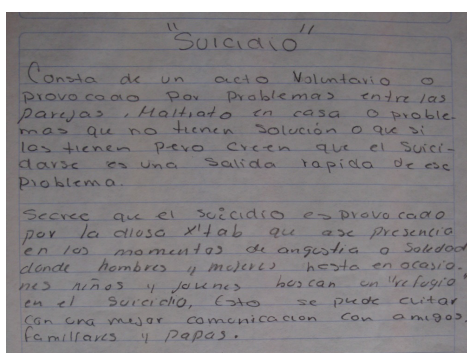 "Suicidio"
Consta de un acto Voluntario o
provocado por problemas entre las
parejas, Maltrato en casa o proble-
mas que no tienen solución o que si
los tienen pero creen que el suici-
darse es una salida rapida de ese
problema.
Secree que el suicidio es provocado
por la diosa x'tab que ase presencia
en los momentos de angustia o soledad
donde hombres y mujeres hasta en ocasio-
nes niños y jovenes buscan un "refugio"
en el suicidio, Esto se puede evitar
con una mejor comunicacion con amigos,
familiares y papas.